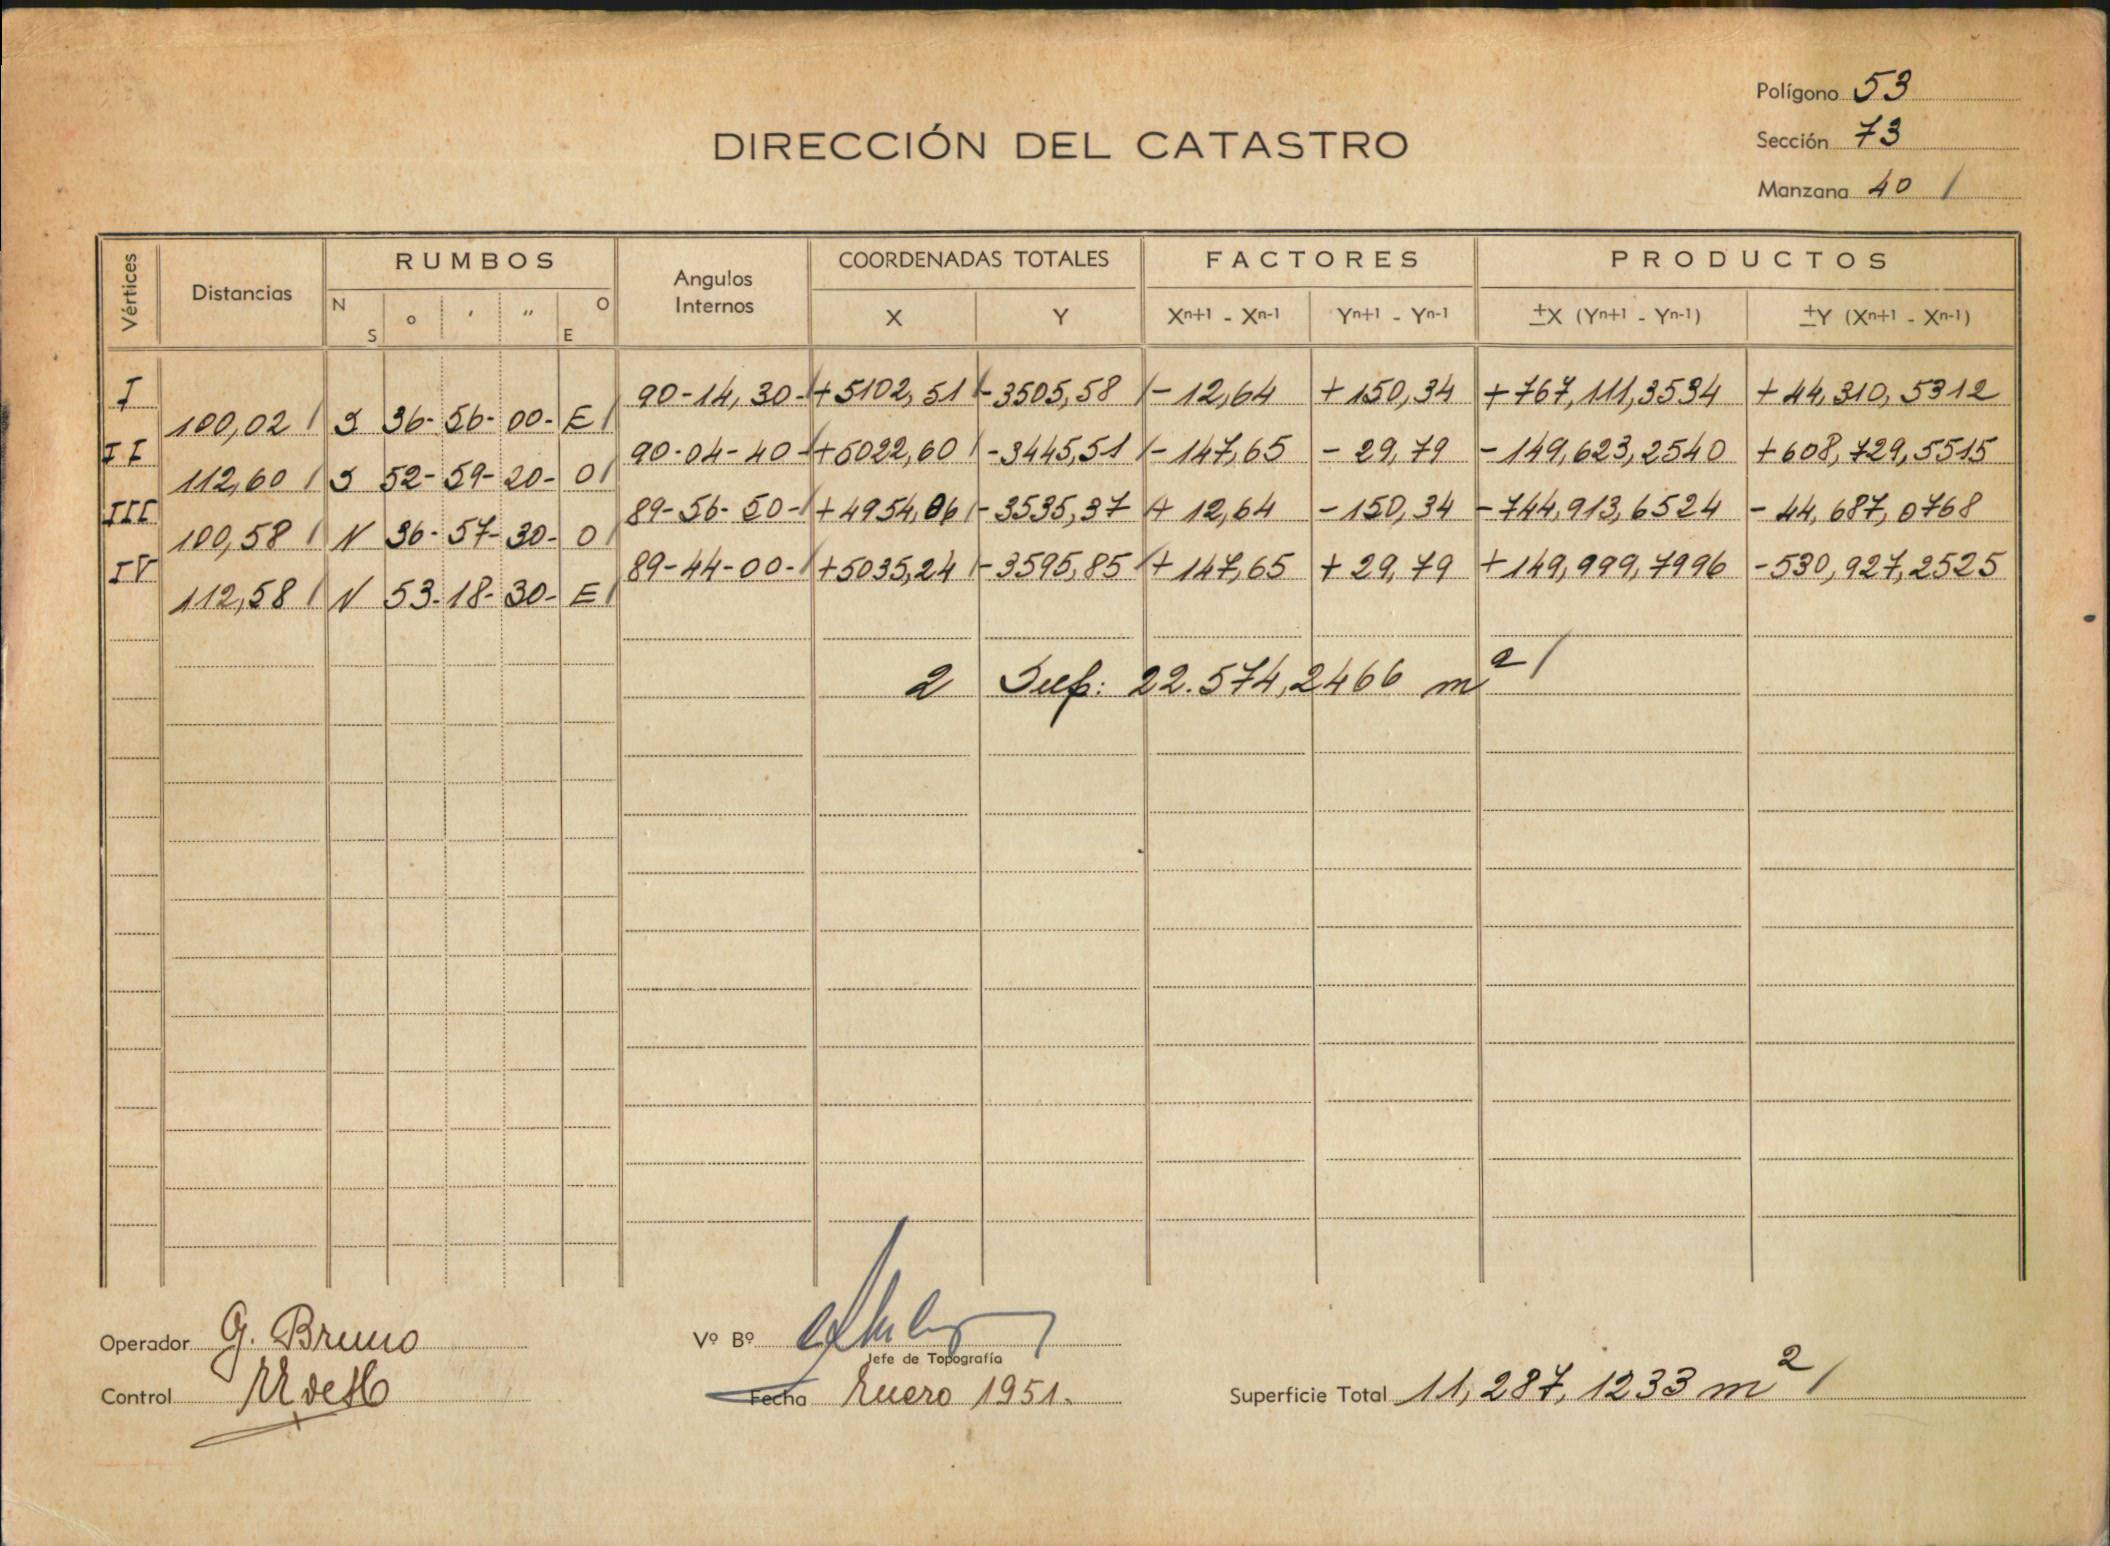 Polígono 53
DIRECCIÓN DEL CATASTRO
Sección 73
Manzana 40 /
Vértices Distancias RUMBOS Angulos Internos COORDENADAS TOTALES FACTORES PRODUCTOS
N S ° ' " O E X Y Xn+1 - Xn-1 Yn+1 - Yn-1 ±X (Yn+1 - Yn-1) ±Y (Xn+1 - Xn-1)
I 90-14,30-/ +5102,51 / -3505,58 / -12,64 +150,34 +767,111,3534 +44,310,5312
100,02 / S 36- 56- 00- E /
II 90-04-40-/ +5022,60 / -3445,51 / -147,65 -29,79 -149,623,2540 +508,729,5515
112,60 / S 52- 59- 20- O /
III 89-56-50-/ +4954,86 / -3535,37 / + 12,64 -150,34 -744,913,6524 -44,687,0768
100,58 / N 36- 57- 30- O /
IV 89-44-00-/ +5035,24 / -3595,85 / +147,65 +29,79 +149,999,7996 -530,927,2525
112,58 / N 53- 18- 30- E /
2 Sup: 22.574,2466 m2 /
Operador G. Bruno
Vº Bº
Jefe de Topografía
Control
Fecha Enero 1951.
Superficie Total 11,287,1233 m2 /